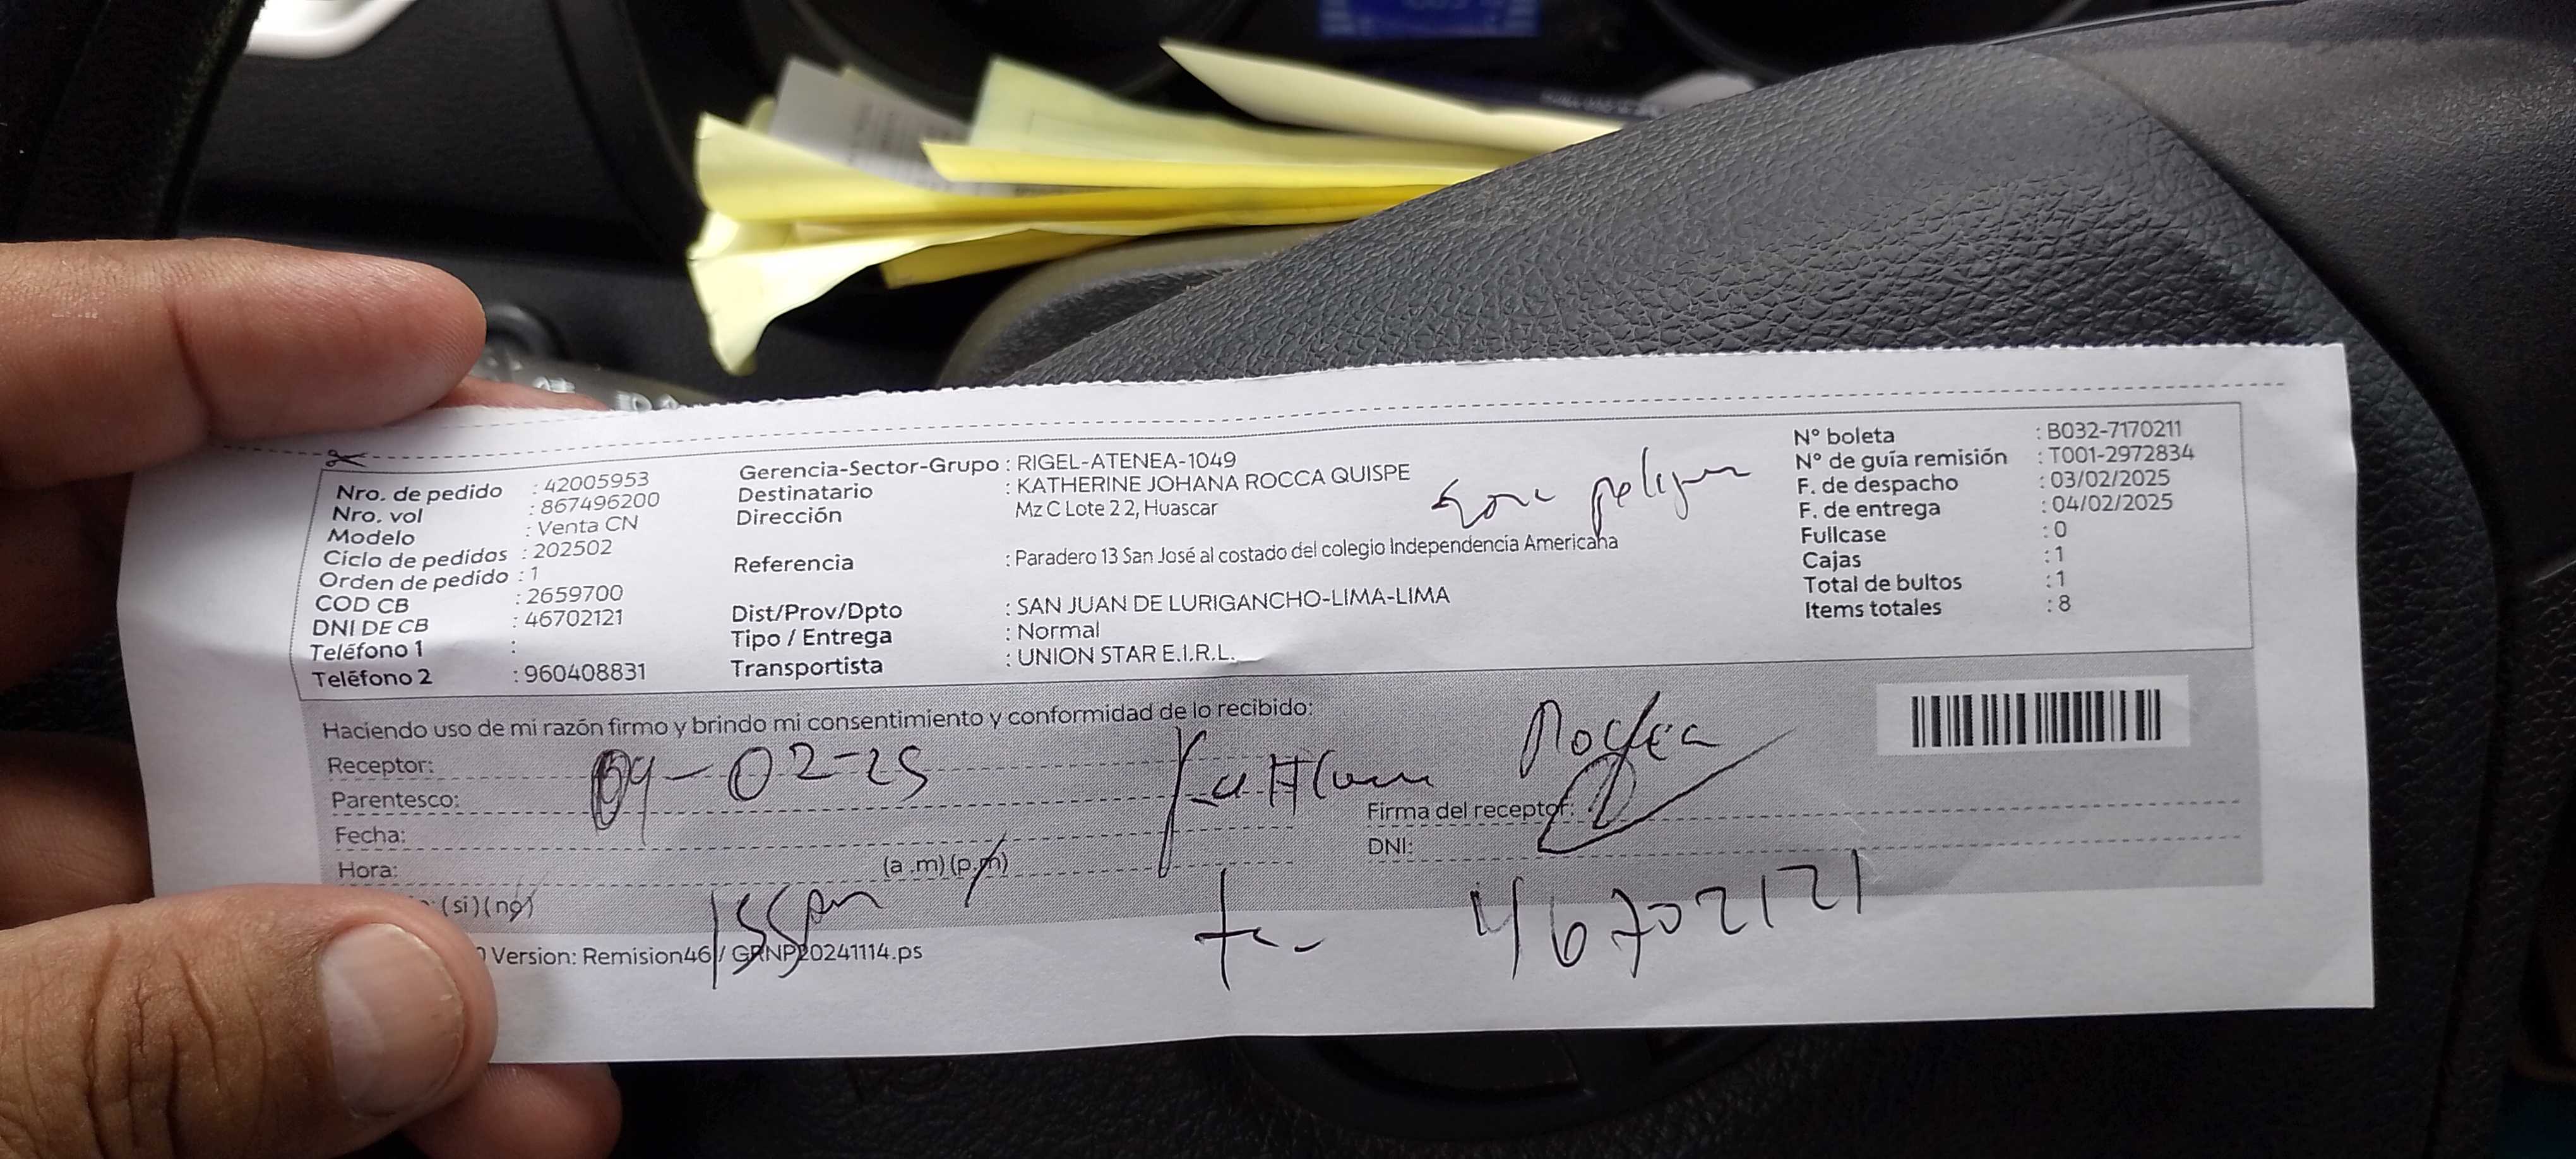 Nro. de pedido : 42005953
Nro. vol : 867496200
Modelo : Venta CN
Ciclo de pedidos : 202502
Orden de pedido : 1
COD CB : 2659700
DNI DE CB : 46702121
Teléfono 1 :
Teléfono 2 : 960408831
Gerencia-Sector-Grupo : RIGEL-ATENEA-1049
Destinatario : KATHERINE JOHANA ROCCA QUISPE
Dirección Mz C Lote 2 2, Huascar
Referencia : Paradero 13 San José al costado del colegio Independencia Americana
Dist/Prov/Dpto : SAN JUAN DE LURIGANCHO-LIMA-LIMA
Tipo / Entrega : Normal
Transportista : UNION STAR E.I.R.L.
N° boleta : B032-7170211
N° de guía remisión : T001-2972834
F. de despacho : 03/02/2025
F. de entrega : 04/02/2025
Fullcase : 0
Cajas : 1
Total de bultos : 1
Items totales : 8
Haciendo uso de mi razón firmo y brindo mi consentimiento y conformidad de lo recibido:
Receptor:
Parentesco: 04-02-25
Fecha:
Hora: (a.m)(p.m)
Firma del receptor:
DNI:
(si)(no)
46702121
Version: Remision46 / GRNP20241114.ps